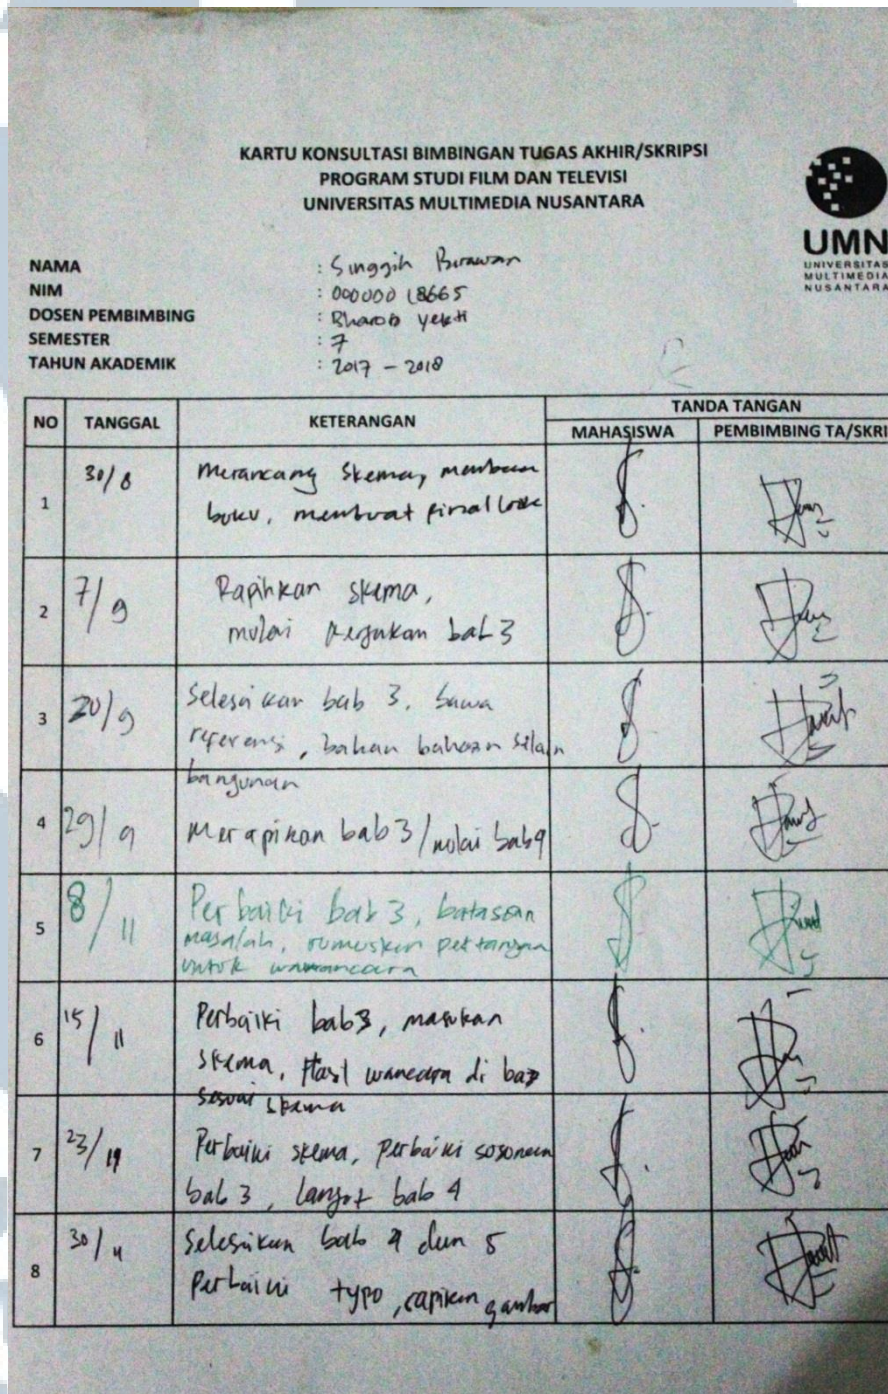 KARTU KONSULTASI BIMBINGAN TUGAS AKHIR/SKRIPSI
PROGRAM STUDI FILM DAN TELEVISI
UNIVERSITAS MULTIMEDIA NUSANTARA
UMN
UNIVERSITAS
MULTIMEDIA
NUSANTARA
NAMA : Singgih Birawan
NIM : 00000018665
DOSEN PEMBIMBING : Bharoto Yekti
SEMESTER : 7
TAHUN AKADEMIK : 2017 - 2018
NO TANGGAL KETERANGAN TANDA TANGAN
MAHASISWA PEMBIMBING TA/SKRI
1 30/8 Merancang skema, membuat
buku, membuat final look
2 7/9 Rapihkan skema,
mulai kerjakan bab 3
3 20/9 Selesaikan bab 3, bawa
referensi, bahan bahasan selain
bangunan
4 29/9 Merapikan bab 3/mulai bab 4
5 8/11 Perbaiki bab 3, batasan
masalah, rumuskan pertanyaan
untuk wawancara
6 15/11 Perbaiki bab 3, masukan
skema, Hasil wancara di bab
sesuai skema
7 23/11 Perbaiki skema, perbaiki susunan
bab 3, lanjut bab 4
8 30/11 Selesaikan bab 4 dan 5
Perbaiki typo, rapikan gambar